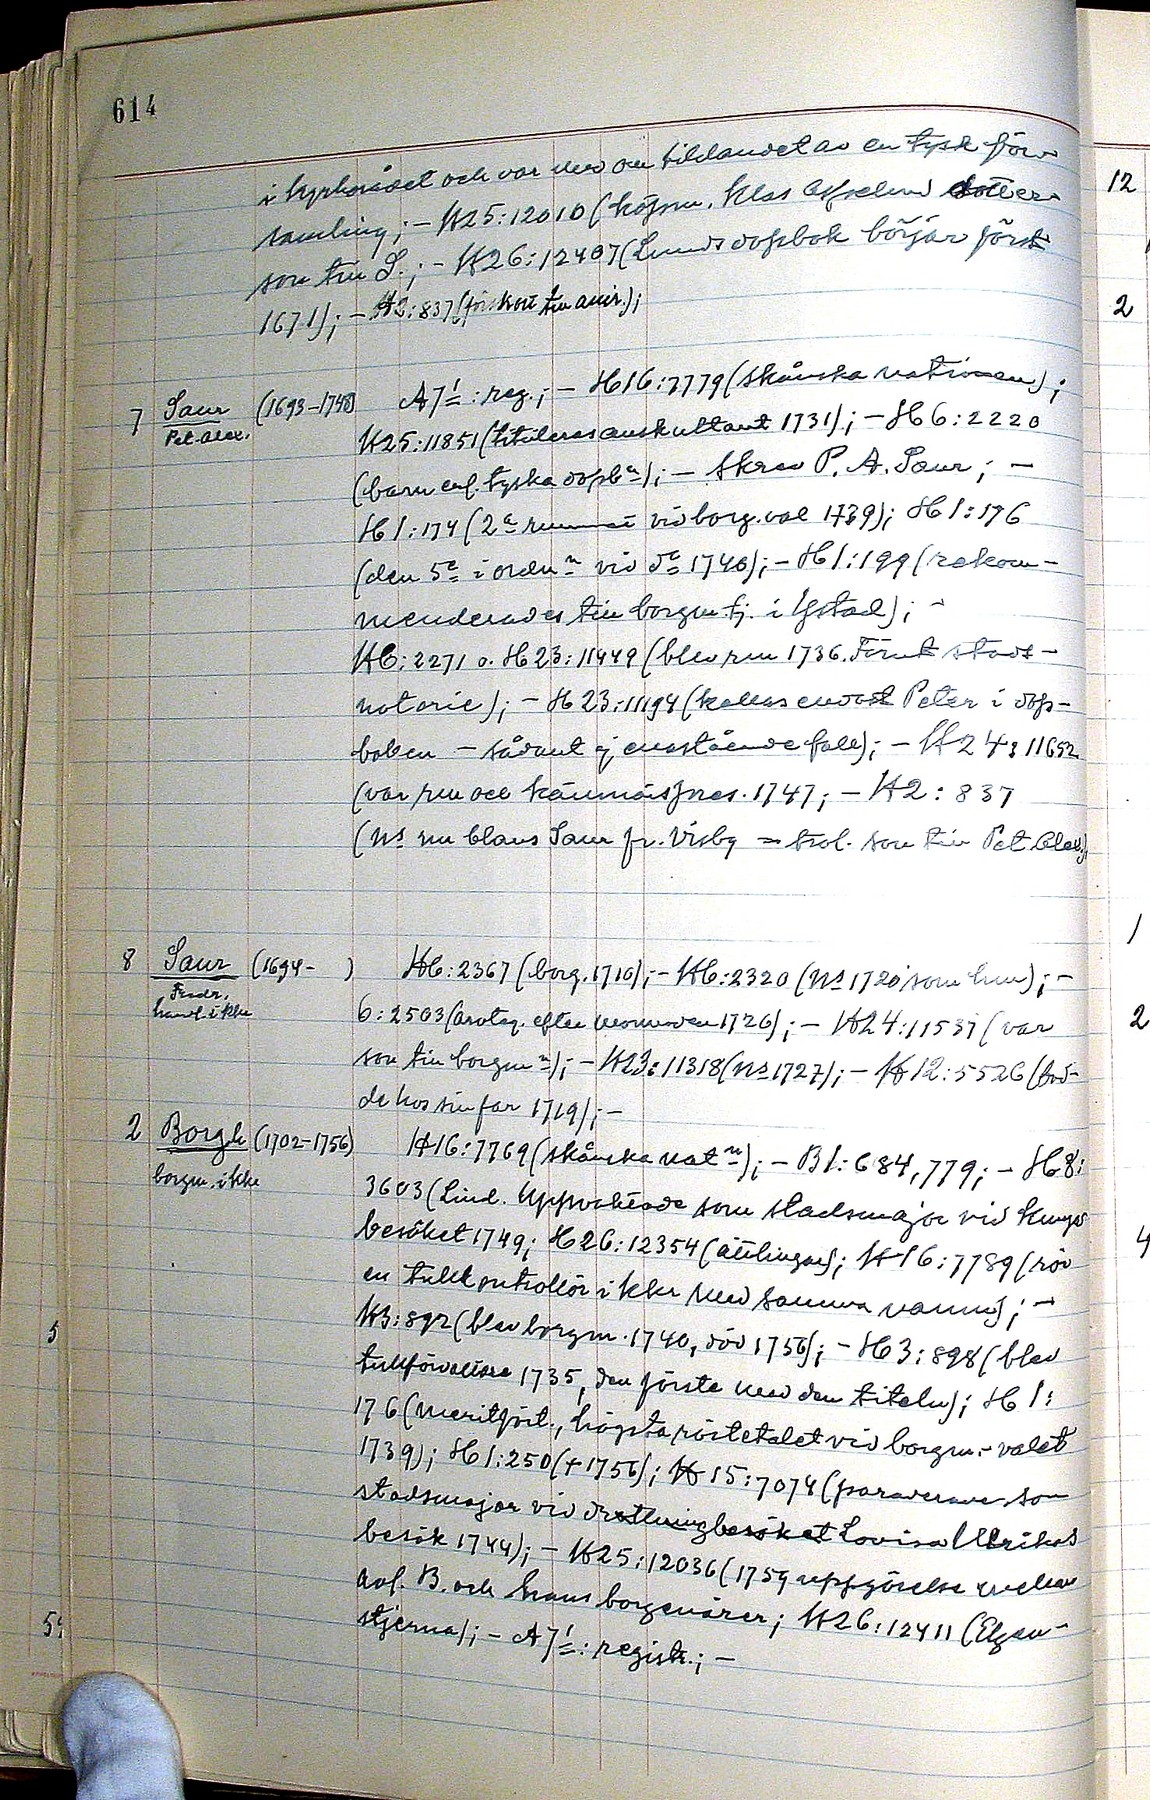 614
i kyrkorådet och var med om bildandet av en tysk för-
samling; - H25:12010 (köpm. Klas dotter-
son till S.; - H26:12407 (Lunds dopbok börjar först
1671); - H2:837 (till anir.);
7 Saur (1693-1748) A7 1/2: reg.; - H16:7779 (skånska nationen);
Pet. Alex. H25:11851 (tituleras auskultant 1731); - H6:2220
(barn enl. tyska dopbn); - skrev P. A. Saur; -
H1:174 (2a rummet vid borg.val 1739); H1:176
(den 5e i ordn vid do 1740); - H1:199 (rekom-
menderades till borgm.tj. i Ystad); -
H6:2271 o. H23:11449 (blev rm 1736. Förut stads-
notarie); - H23:11194 (kallas endast Peter i dop-
boken - sådant ej enastående fall); - H24:11652
(var rm och kämnärspres. 1747; - H2:837
(Ns nm Claus Saur fr. Visby = trol. son till Pet. Alex.);
8 Saur (1694- ) H6:2367 (borg. 1710); - H6:2320 (Ns 1720 som hm); -
Fredr. 6:2503 (arvtag. efter 1726); - H24:11537 (var
handl. i kka
son till borgm); - H23:11318 (Ns 1727); - H12:5526 (bod-
de hos sin far 1719); -
2 Borgh (1702-1756) H16:7769 (skånska natn); - B1:684, 779; - H8:
borgm. i kka 3603 (Lind. Uppvaktade som stadsmajor vid kunga
besöket 1749; H26:12354 (ättlingar); H16:7789 (rör
en tullkontrollör i kka med samma namn); -
H3:892 (blev borgm. 1740, död 1756); - H3:898 (blev
tullförvaltare 1735, den förste med den titeln); H1:
176 (meritfört., högsta röstetalet vid borgm.-valet
1739); H1:250 († 1756); H15:7074 (paraderade som
stadsmajor vid Lovisa Ulrikas
besök 1744); - H25:12036 (1759 uppgörelse mellan
avl. B. och hans borgenärer; H26:12411 (Elgen-
stjerna); - A7 1/2: registr.; -
12
2
1
2
4
5